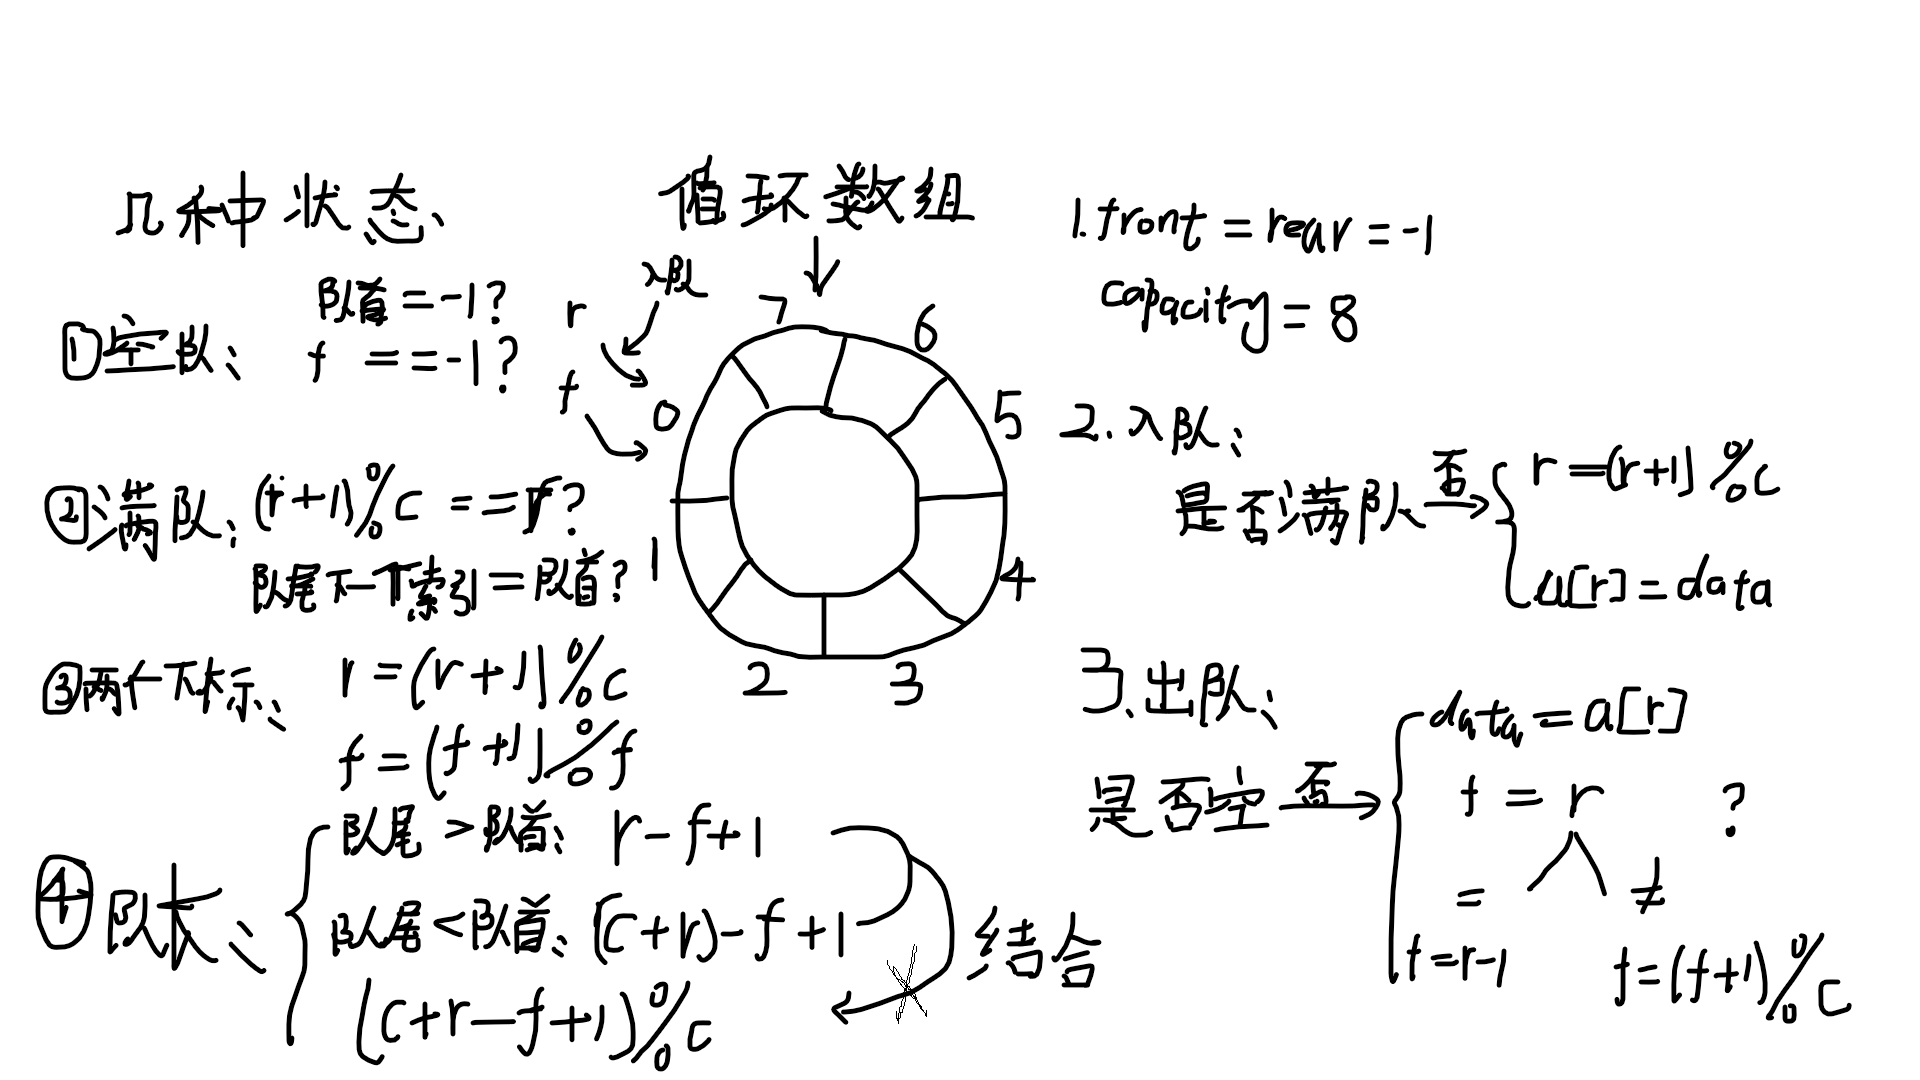 几种状态、
①空队：
队首=-1?
f ==-1?
②满队：(r+1)%c ==f?
队尾下一个索引=队首?
③两个下标：
r=(r+1)%c
f=(f+1)%f
④队长：
队尾>队首：r-f+1
队尾<队首：(c+r)-f+1
(c+r-f+1)%c
结合
循环数组
入队
r
f
7
6
0
5
1
4
2
3
1.front=rear=-1
capacity=8
2.入队：
是否满队
否
r=(r+1)%c
a[r]=data
3.出队：
是否空
否
data=a[r]
f=r ?
= ≠
f=r-1 f=(f+1)%c